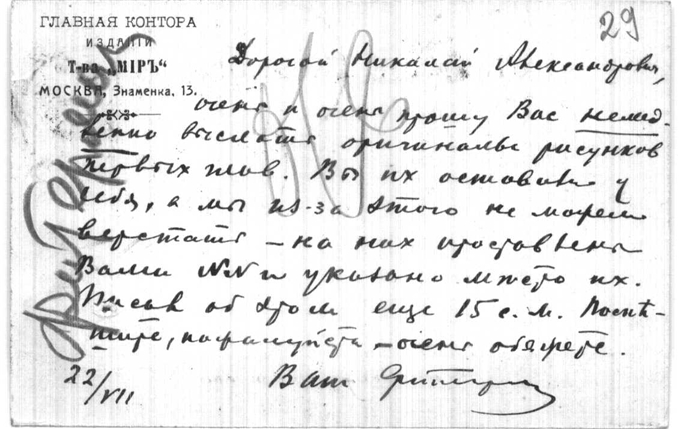 ГЛАВНАЯ КОНТОРА
ИЗДАНІЙ
Т-ва „МІРЪ“
МОСКВА, Знаменка, 13.
29
Дорогой Николай Александрович,
очень и очень прошу Вас немед-
ленно выслать оригиналы рисунков
первых глав. Вы их оставили у
себя, а мы из-за этого не можем
верстать – на них проставлены
Вами №№ и указано мѣсто их.
Писал об этом еще 15 с. м. Поспѣ-
шите, пожалуйста – очень обяжете.
22/VII
Ваш